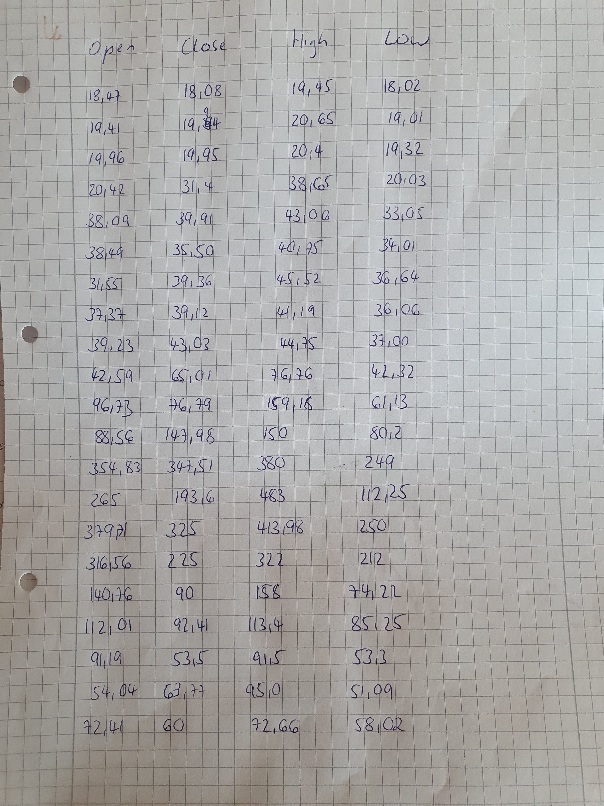 Open Close High Low
18,47 18,08 19,45 18,02
19,41 19,94 20,65 19,01
19,96 19,95 20,4 19,32
20,42 31,4 38,65 20,03
38,09 39,91 43,06 33,05
38,49 35,50 40,75 34,01
31,55 39,36 45,52 36,64
37,37 39,12 41,19 36,06
39,23 43,03 44,75 37,00
42,59 65,01 76,76 42,32
96,73 76,79 159,18 61,13
88,56 147,98 150 80,2
354,83 347,51 380 249
265 193,6 483 112,25
379,71 325 413,98 250
316,56 225 322 212
140,76 90 158 74,22
112,01 92,41 113,4 85,25
91,19 53,5 91,5 53,3
54,04 63,77 95,0 51,09
72,41 60 72,66 58,02